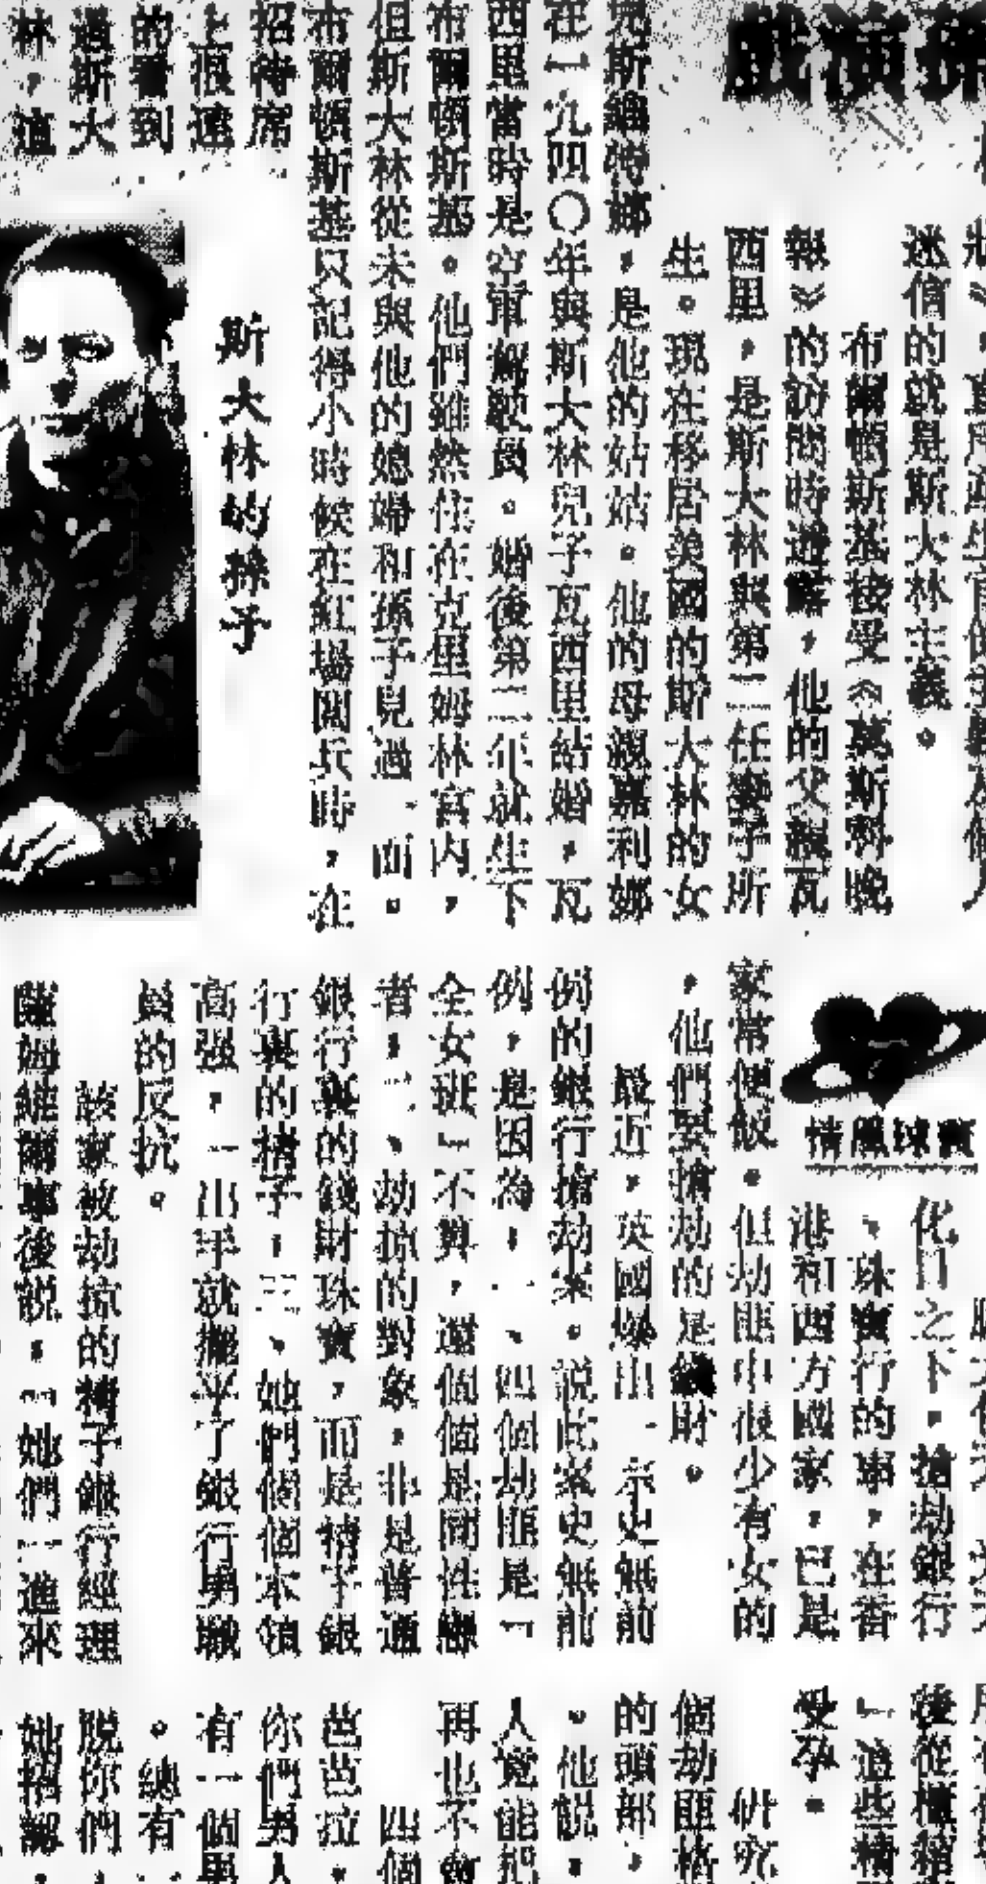 孫演戲
迷信的就是斯大林主義。
布爾頓斯基接受《莫斯科晚
報》的訪問時透露，他的父親瓦
西里，是斯大林與第二任妻子所
生。現在移居美國的斯大林的女
兒斯維特娜，是他的姑姑。他的母親嘉利娜
在一九四〇年與斯大林兒子瓦西里結婚，瓦
西里當時是空軍駕駛員。婚後第二年就生下
布爾頓斯基。他們雖然住在克里姆林宮內，
但斯大林從未與他的媳婦和孫子見過一面。
布爾頓斯基只記得小時候在紅場閱兵時，在
招待席
上很遠
的看到
過斯大
林，這
斯大林的孫子
寶球風情
化日之下，搶劫銀行
、珠寶行的事，在香
港和西方國家，已是
家常便飯。但劫匪中很少有女的
，他們要搶劫的是錢財。
最近，英國爆出一宗史無前
例的銀行搶劫案。說此案史無前
例，是因為，一、四個劫匪是「
全女班」不算，還個個是同性戀
者，二、劫掠的對象，非是普通
銀行裏的錢財珠寶，而是精子銀
行裏的精子，三、她們個個本領
高强，一出手就擺平了銀行男職
員的反抗。
該家被劫掠的精子銀行經理
薩姆維爾事後説，「她們一進來
後從櫃
」這些精
受孕。
研究
個劫匪
的頭部，
。他説，
人竟能把
再也不會
四個
芭芭拉，
你們男人
有一個男
。總有一
脱你們，
她招認，